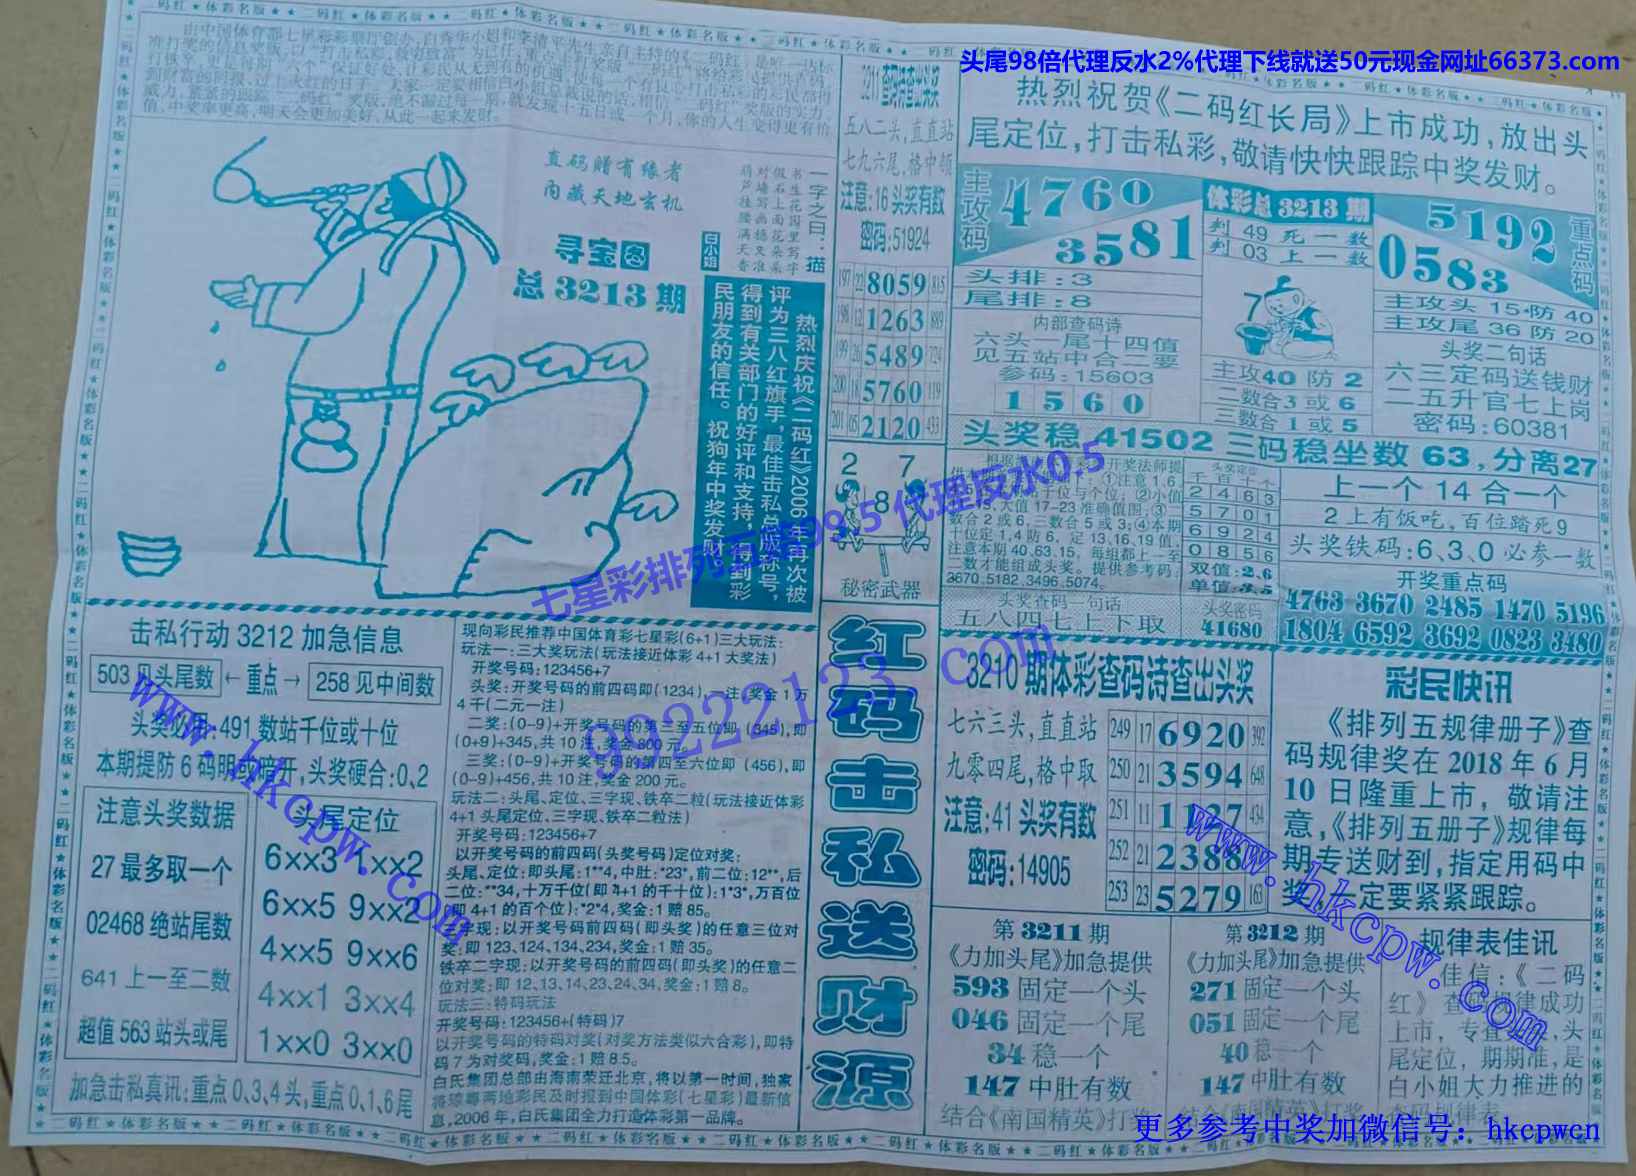 头尾98倍代理反水2%代理下线就送50元现金网址66373.com
直码赠有缘者
内藏天地玄机
寻宝图
总3213期
白小姐
一字之曰：猫
书生花园里写字
假石上面花朵朵
对墙写画德文准
葫芦挂腰满天香
热烈庆祝《二码红》2006年再次被
评为三八红旗手，最佳击私总版称号，
得到有关部门的好评和支持，得到彩
民朋友的信任。祝狗年中奖发财。
3211查码特查出头奖
五八二头，直直站
七九六尾，格中顿
注意：16头奖有数
密码：51924
197 22 8059 815
198 12 1263 889
199 26 5489 724
200 18 5760 119
201 05 2120 433
2 7
8
秘密武器
红码击私送财源
热烈祝贺《二码红长局》上市成功，放出头
尾定位，打击私彩，敬请快快跟踪中奖发财。
主攻码
4760
3581
体彩总3213期
判49死一数
判03上一数
5192
0583
重点码
头排：3
尾排：8
内部查码诗
六头一尾十四值
见五站中合二要
参码：15603
1560
7
主攻40防2
二数合3或6
三数合1或5
主攻头15·防40
主攻尾36防20
头奖二句话
六三定码送钱财
二五升官七上岗
密码：60381
头奖稳41502三码稳坐数63，分离27
开奖法师提
①注意1.6
十位与个位；②小值
大值17-23准确值围；③
数合2或6，三数合5或3；④本期
十位定1.4防6，定13、16、19值，
注意本期40.63.15，每组都上一至
二数才能组成头奖。提供参考码：
3670、5182、3496、5074。
头奖定位
千百十个
2463
5701
6924
0856
双值：2、6
单值：3、5
上一个14合一个
2上有饭吃，百位踏死9
头奖铁码：6、3、0必参一数
开奖重点码
4763 3670 2485 1470 5196
1804 6592 3692 0823 3480
头奖查码一句话
五八四七上下取
头奖密码
41680
七星彩排列五 99.5 代理反水0.5
99222123.com
击私行动3212加急信息
503见头尾数 ←重点→ 258见中间数
头奖必用：491数站千位或十位
本期提防6码明或暗开，头奖硬合：0、2
注意头奖数据
27最多取一个
02468绝站尾数
641上一至二数
超值563站头或尾
头尾定位
6××3 1××2
6××5 9××2
4××5 9××6
4××1 3××4
1××0 3××0
加急击私真讯：重点0、3、4头，重点0、1、6尾
现向彩民推荐中国体育彩七星彩(6+1)三大玩法：
玩法一：三大奖玩法（玩法接近体彩4+1大奖法）
开奖号码：123456+7
头奖：开奖号码的前四码即(1234)，一注(奖金1万
4千(二元一注)
二奖：(0-9)+开奖号码的第三至五位即(345)，即
(0+9)+345，共10注，奖金800元。
三奖：(0-9)+开奖号码的第四至六位即(456)，即
(0-9)+456，共10注，奖金200元。
玩法二：头尾、定位、三字现、铁卒二粒（玩法接近体彩
4+1头尾定位、三字现、铁卒二粒法）
开奖号码：123456+7
以开奖号码的前四码(头奖号码)定位对奖：
头尾、定位：即头尾：1**4，中肚：*23*，前二位：12**，后
二位：**34，十万千位(即4+1的千十位)：1*3*，万百位
(即4+1的百个位)：*2*4，奖金：1赔85。
三字现：以开奖号码前四码(即头奖)的任意三位对
奖：即123、124、134、234，奖金：1赔35。
铁卒二字现：以开奖号码的前四码(即头奖)的任意二
位对奖：即12、13、14、23、24、34，奖金：1赔8。
玩法三：特码玩法
开奖号码：123456+(特码)7
以开奖号码的特码对奖(对奖方法类似六合彩)，即特
码7为对奖码，奖金：1赔8.5。
白氏集团总部由海南荣迁北京，将以第一时间，独家
将琼粤两地彩民及时报到中国体彩(七星彩)最新信
息，2006年，白氏集团全力打造体彩第一品牌。
3210期体彩查码诗查出头奖
七六三头，直直站
九零四尾，格中取
注意：41头奖有数
密码：14905
249 17 6920 392
250 21 3594 648
251 11 1127 434
252 21 2388
253 23 5279 163
彩民快讯
《排列五规律册子》查
码规律奖在2018年6月
10日隆重上市，敬请注
意，《排列五册子》规律每
期专送财到，指定用码中
奖，一定要紧紧跟踪。
第3211期
《力加头尾》加急提供
593固定一个头
046固定一个尾
34稳一个
147中肚有数
结合《南国精英》打奖
第3212期
《力加头尾》加急提供
271固定一个头
051固定一个尾
40稳一个
147中肚有数
规律表佳讯
佳信：《二码
红》查码规律成功
上市，专查，头
尾定位，期期准，是
白小姐大力推进的
www.hkcpw.com
www.hkcpw.com
更多参考中奖加微信号：hkcpwcn
二码红★体彩名版